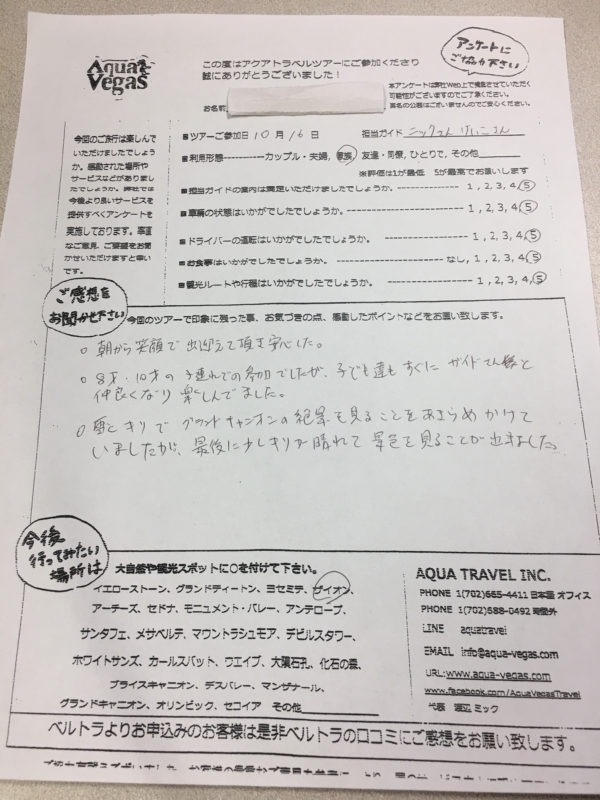 Aqua Vegas
この度はアクアトラベルツアーにご参加くださり
誠にありがとうございました！
アンケートに
ご協力下さい
本アンケートは弊社Web上で掲載させていただく
可能性がございますのでご了承ください。
実名の公表はございませんのでご安心ください。
お名前
今回のご旅行は楽しんで
いただけましたでしょう
か。感動された場所や
サービスなどがありまし
たでしょうか。弊社では
今後より良いサービスを
提供すべくアンケートを
実施しております。率直
なご意見、ご要望をお聞
かせいただけますと幸い
です。
■ツアーご参加日 10月 16日 担当ガイド ニックさん けいこさん
■利用形態-----------カップル・夫婦, 家族, 友達・同僚, ひとりで, その他
※評価は1が最低 5が最高でお願いします
■担当ガイドの案内は満足いただけましたでしょうか。 ---------------- 1, 2, 3, 4, 5
■車輌の状態はいかがでしたでしょうか。 ---------------- 1, 2, 3, 4, 5
■ドライバーの運転はいかがでしたでしょうか。 ---------------- 1, 2, 3, 4, 5
■お食事はいかがでしたでしょうか。 ---------------- なし, 1, 2, 3, 4, 5
■観光ルートや行程はいかがでしたでしょうか。 ---------------- 1, 2, 3, 4, 5
ご感想を
お聞かせ下さい
今回のツアーで印象に残った事、お気づきの点、感動したポイントなどをお願い致します。
○ 朝から笑顔で出迎えて頂き安心した。
○ 8才・10才の子連れでの参加でしたが、子ども達もすぐにガイドさん達と
仲良くなり楽しんでました。
○ 雪とキリでグランドキャニオンの絶景を見ることをあきらめかけて
いましたが、最後に少しキリが晴れて景色を見ることが出来ました。
今後
行ってみたい
場所は
大自然や観光スポットに○を付けて下さい。
イエローストーン、グランドティートン、ヨセミテ、ザイオン、
アーチーズ、セドナ、モニュメント・バレー、アンテロープ、
サンタフェ、メサベルデ、マウントラシュモア、デビルスタワー、
ホワイトサンズ、カールスバット、ウエイブ、大隕石孔、化石の森、
ブライスキャニオン、デスバレー、マンザナール、
グランドキャニオン、オリンピック、セコイア その他
AQUA TRAVEL INC.
PHONE 1(702)665-4411 日本語 オフィス
PHONE 1(702)588-0492 時間外
LINE aquatravel
EMAIL info@aqua-vegas.com
URL:www.aqua-vegas.com
www.facebook.com/AquaVegasTravel
代表 渡辺 ミック
ベルトラよりお申込みのお客様は是非ベルトラの口コミにご感想をお願い致します。